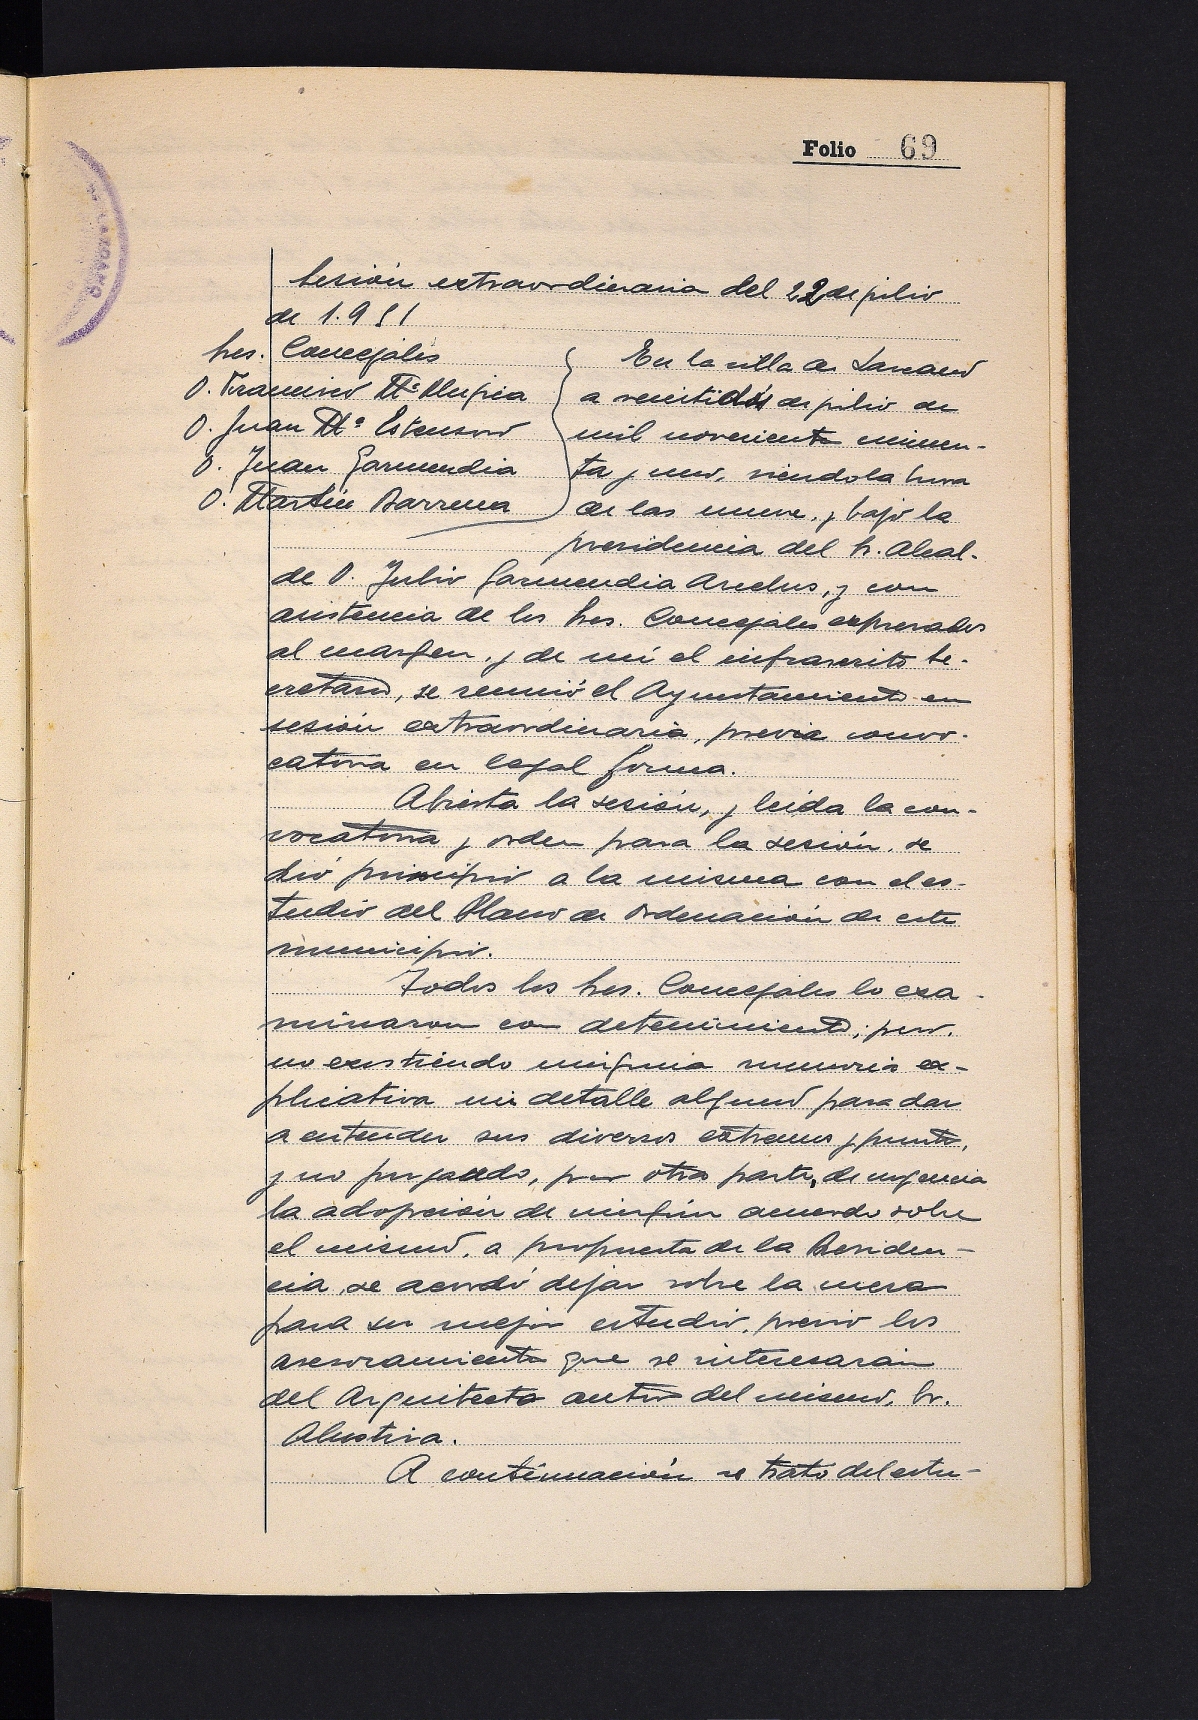 Folio 69
Sesión extraordinaria del 22 de julio
de 1.951
Sres. Concejales
D. Francisco Mª Mugica
D. Juan Mª Estensoro
D. Juan Garmendia
D. Martín Barrena
En la villa de Lazcano
a veintidós de julio de
mil novecientos cincuen-
ta y uno, siendo la hora
de las nueve, y bajo la
presidencia del Sr. Alcal-
de D. Julio Garmendia Arcelus, y con
asistencia de los Sres. Concejales expresados
al margen, y de mí el infrascrito Se-
cretario, se reunió el Ayuntamiento en
sesión extraordinaria, previa convo-
catoria en legal forma.
Abierta la sesión, y leída la con-
vocatoria y orden para la sesión, se
dió principio a la misma con el es-
tudio del Plano de Ordenación de este
municipio.
Todos los Sres. Concejales lo exa-
minaron con detenimiento; pero,
no existiendo ninguna memoria ex-
plicativa ni detalle alguno para dar
a entender sus diversos extremos y puntos,
y no juzgando, por otra parte, de urgencia
la adopción de ningún acuerdo sobre
el mismo, a propuesta de la Presiden-
cia, se acordó dejar sobre la mesa
para su mejor estudio, previo los
asesoramientos que se interesarán
del Arquitecto autor del mismo, Sr.
Alustiza.
A continuación se trató del estu-